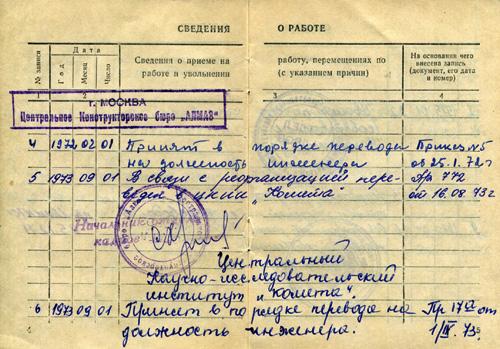 СВЕДЕНИЯ О РАБОТЕ
№ записи
Дата
Год
Месяц
Число
Сведения о приеме на
работе и увольнении
работу, перемещениях по
(с указанием причин)
На основании чего
внесена запись
(документ, его дата
и номер)
3
4
г. МОСКВА
Центральное Конструкторское бюро „АЛМАЗ"
4 1972 02 01 Принят в порядке перевода Приказ №5
на должность инженера от 25.1.72г
5 1973 09 01 В связи с реорганизацией пере- Пр 772
веден в цнии „Комета" от 16.08.73г
Начальник отдела
кадров
Центральный
Научно-исследовательский
институт „Комета".
6 1973 09 01 Принят в порядке перевода на Пр 17 от
должность инженера. 1/IX 73г.